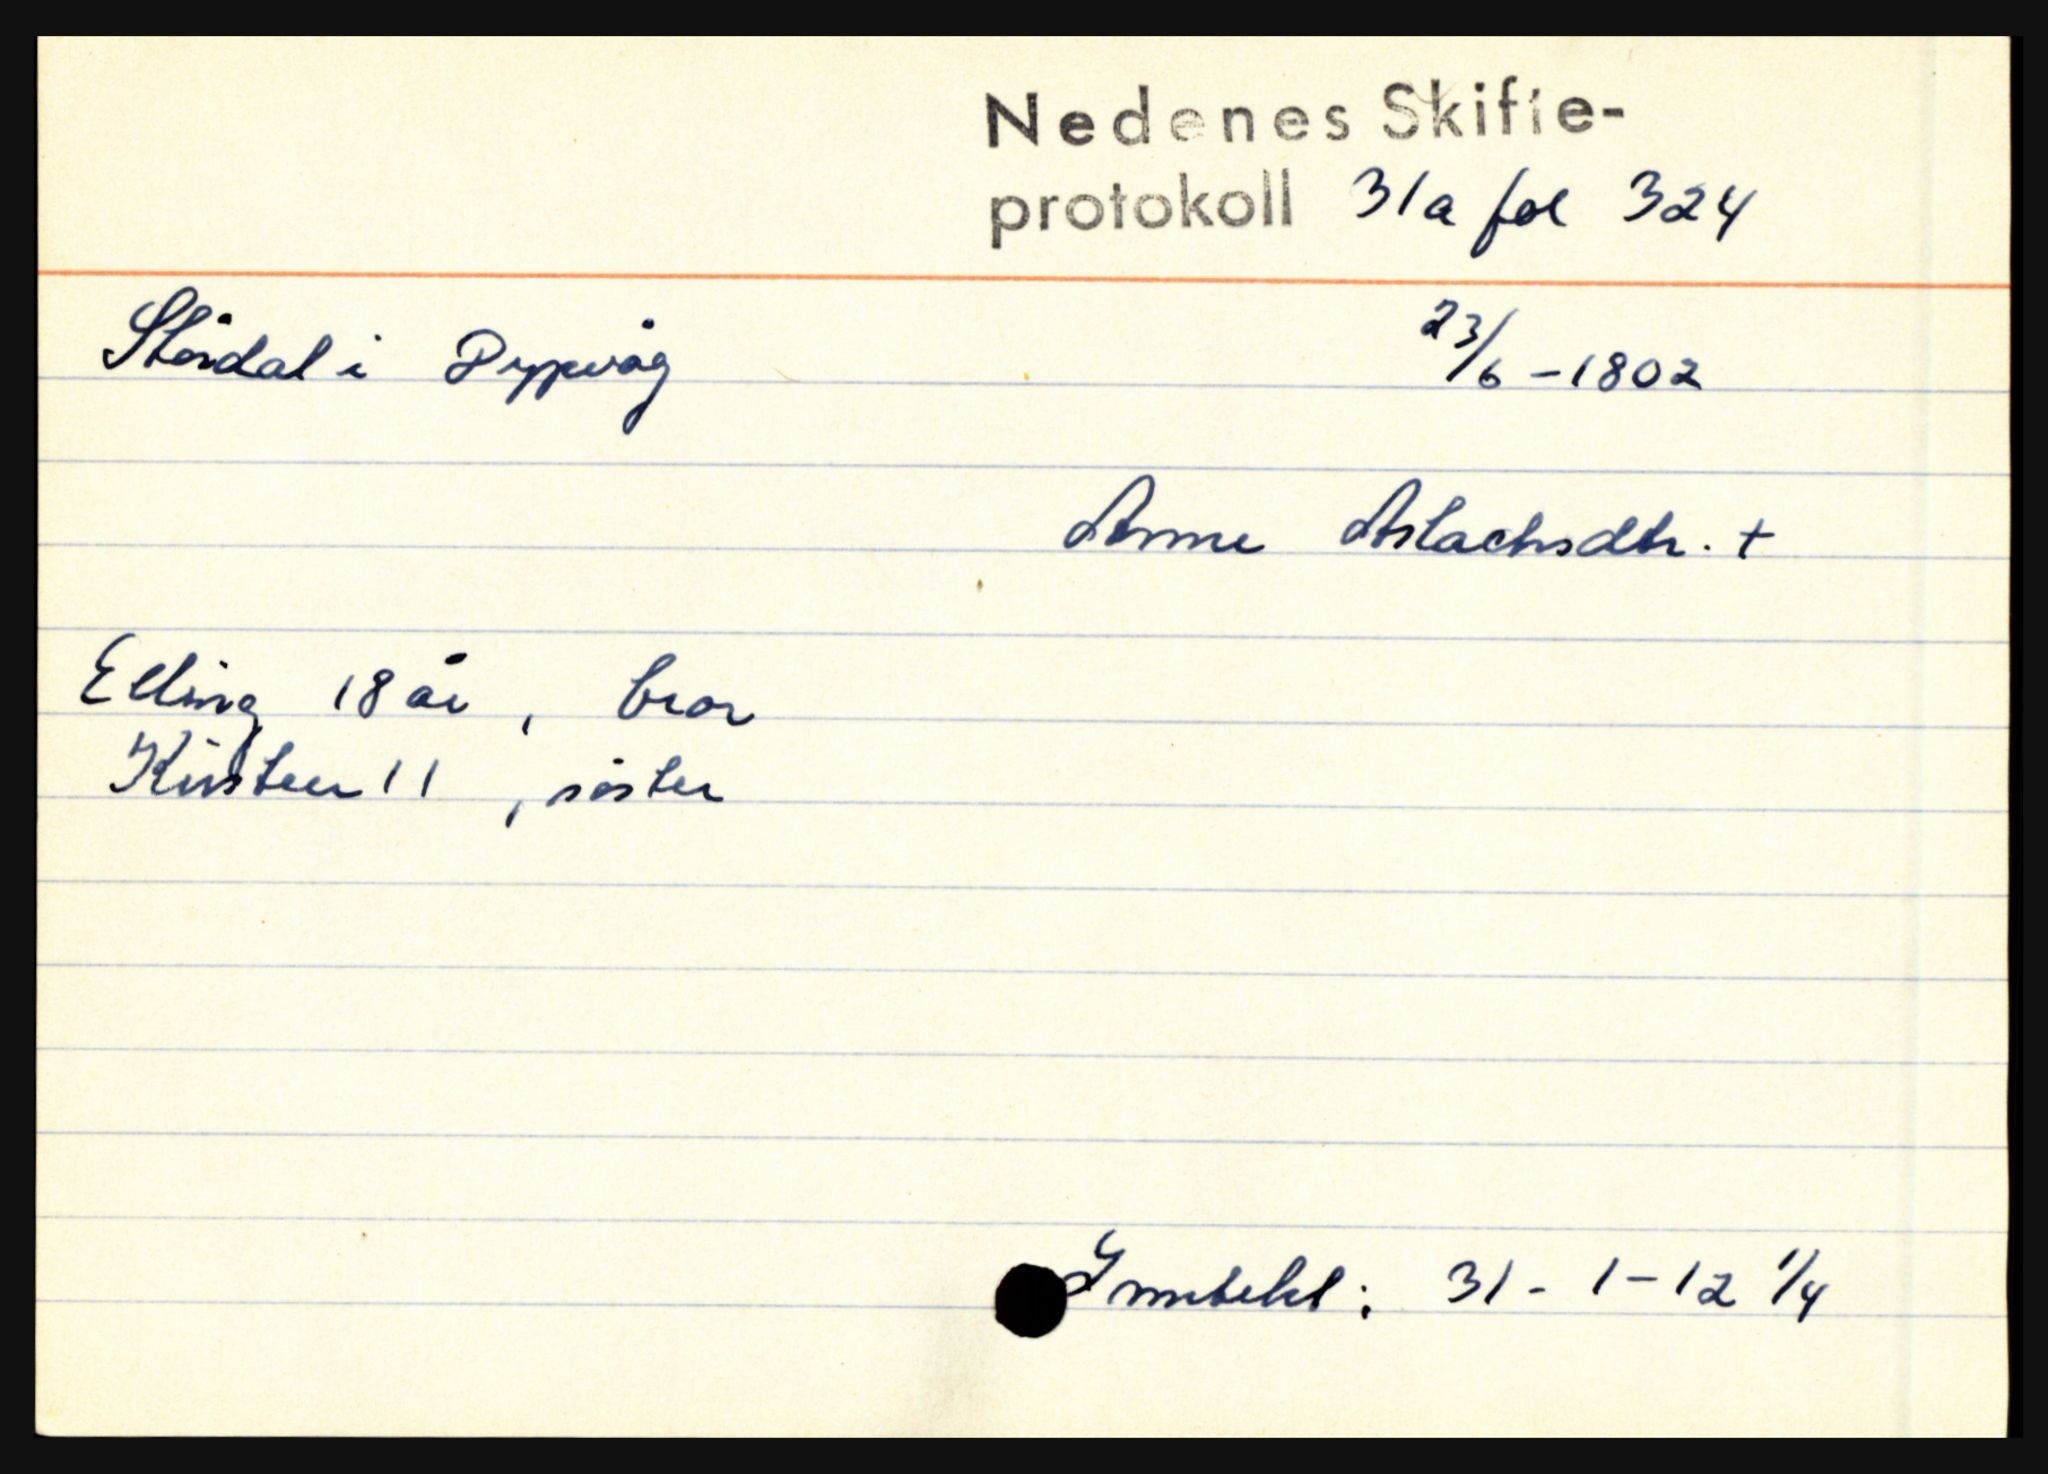 Nedenes Skifte-
protokoll 31a fol 324
Stördal i Dypvåg 23/6-1802
Anne Aslachsdtr. +
Elling 18 år, bror
Kirsten 11, söster
Inntekt: 31-1-12 1/4